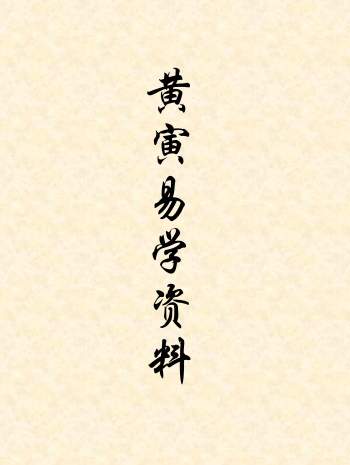 黄寅易学资料